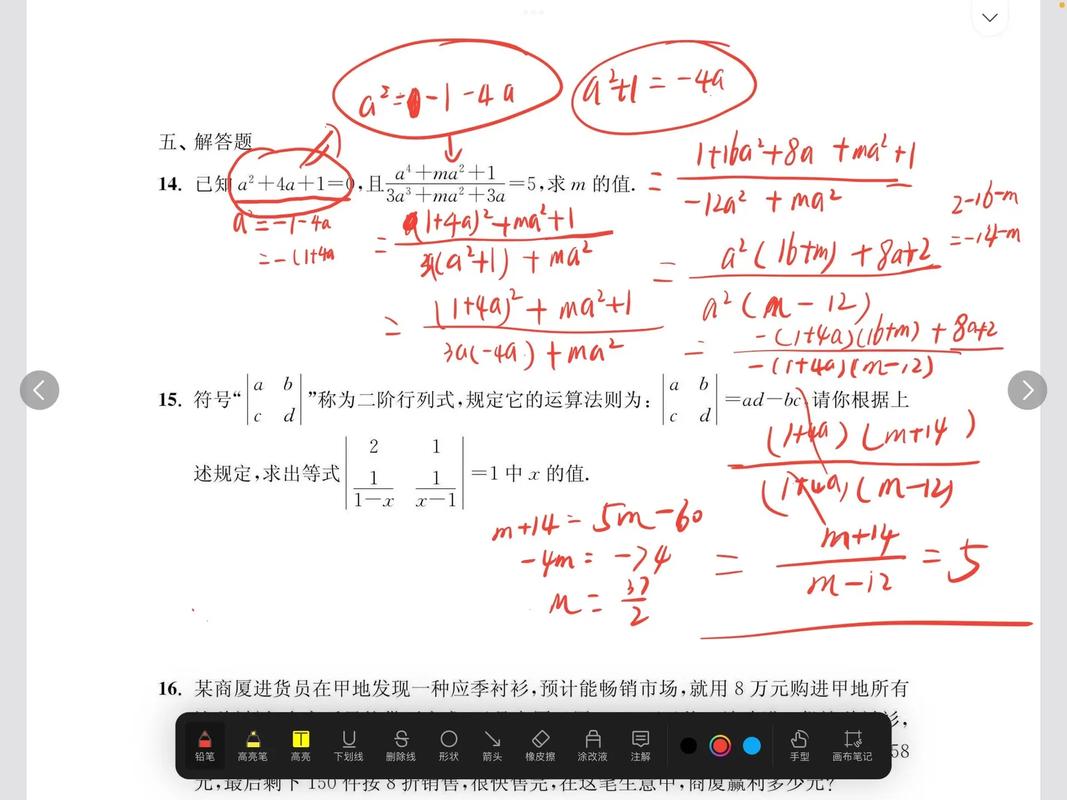 a²=-1-4a
a²+1=-4a
五、解答题
14. 已知a²+4a+1=0,且\frac{a⁴+ma²+1}{3a³+ma²+3a}=5,求 m 的值.
=\frac{1+16a²+8a+ma²+1}{-12a²+ma²}
a²=-1-4a
=-(1+4a
=\frac{(1+4a)²+ma²+1}{3(a²+1)+ma²}
2-16-m
=-14-m
=\frac{a²(16+m)+8a+2}{a²(m-12)}
=\frac{(1+4a)²+ma²+1}{3a(-4a)+ma²}
=\frac{-(1+4a)(16+m)+8a+2}{-(1+4a)(m-12)}
15. 符号“|a b c d|”称为二阶行列式,规定它的运算法则为:|a b c d|=ad-bc,请你根据上
述规定,求出等式|2 1 \frac{1}{1-x} \frac{1}{x-1}|=1中 x 的值.
\frac{(1+4a)(m+14)}{(1+4a)(m-12)}
m+14=5m-60
-4m=-74
m=\frac{37}{2}
=\frac{m+14}{m-12}=5
16. 某商厦进货员在甲地发现一种应季衬衫,预计能畅销市场,就用 8 万元购进甲地所有
衫,
58
元,最后剩下 150 件按 8 折销售,很快售完,在这笔生意中,商厦赢利多少元?
铅笔 高亮笔 高亮 下划线 删除线 形状 箭头 橡皮擦 涂改液 注解 手型 画布笔记